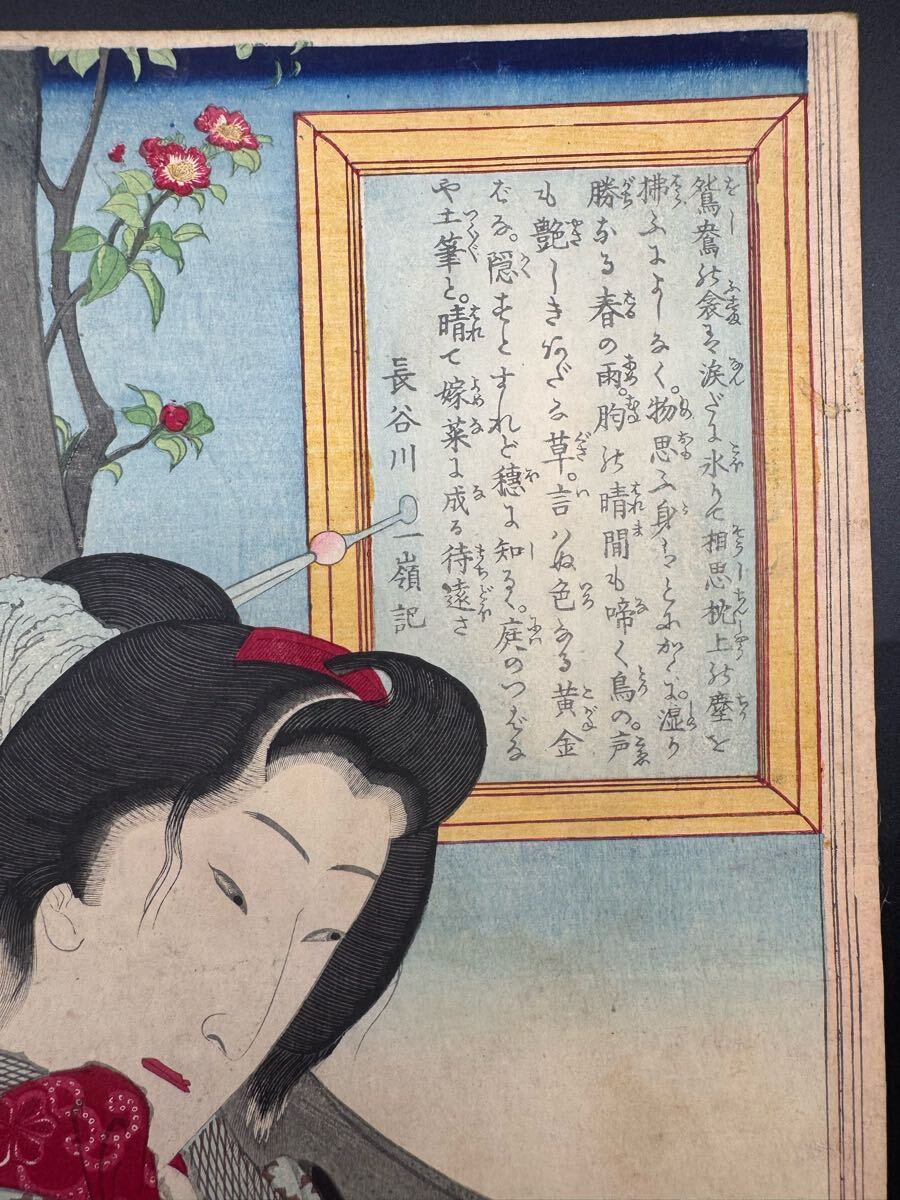 鴛鴦の衾は涙だに氷りて相思枕上の塵を
拂ふによしなく。物思ふ身はとにかくに。湿り
勝なる春の雨。胸の晴間も啼く鳥の。声
も艶しきあだな草。言ハぬ色なる黄金
ばな。隠すとすれど穂に知るく。庭のつばな
や土筆と。晴て嫁菜に成る待遠さ
長谷川一嶺記